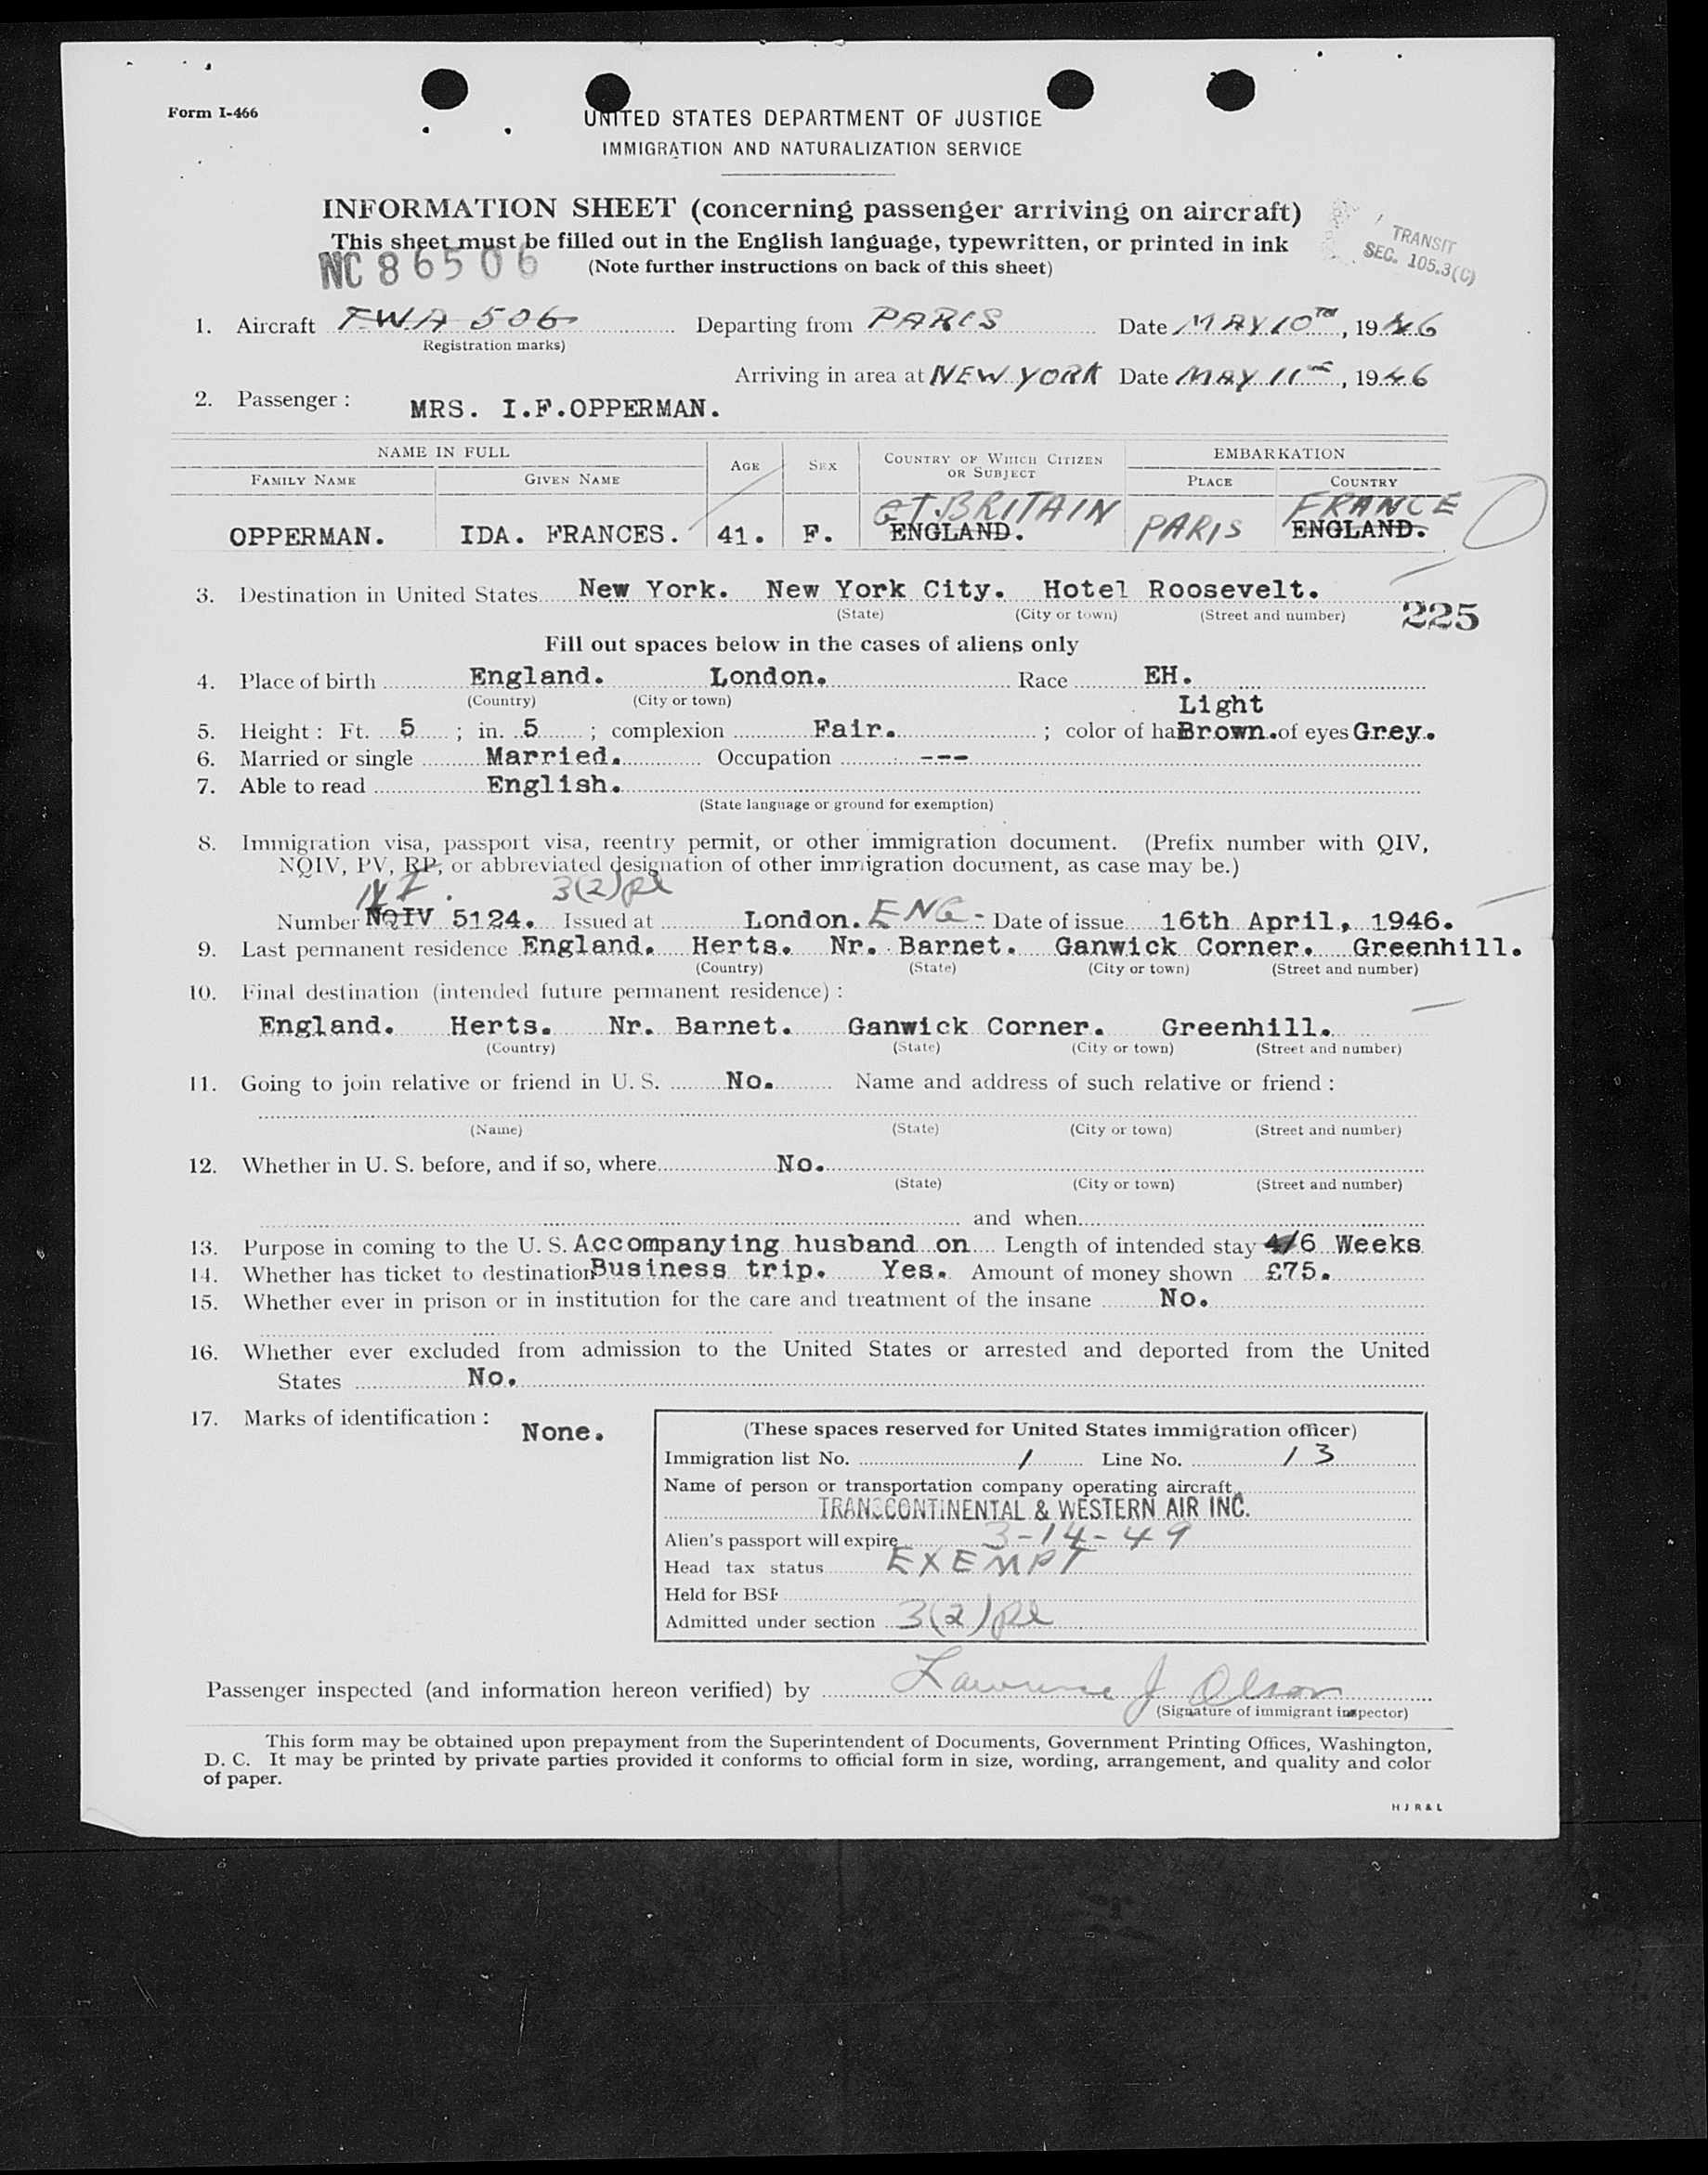 Form I-466
UNITED STATES DEPARTMENT OF JUSTICE
IMMIGRATION AND NATURALIZATION SERVICE
INFORMATION SHEET (concerning passenger arriving on aircraft)
This sheet must be filled out in the English language, typewritten, or printed in ink
NC 86506 (Note further instructions on back of this sheet)
TRANSIT
SEC. 105.3(C)
1. Aircraft TWA 506 Departing from PARIS Date MAY 10TH, 1946
Registration marks)
Arriving in area at NEW YORK Date MAY 11, 1946
2. Passenger : MRS. I.F.OPPERMAN.
NAME IN FULL AGE SEX COUNTRY OF WHICH CITIZEN OR SUBJECT EMBARKATION
FAMILY NAME GIVEN NAME PLACE COUNTRY
GT. BRITAIN FRANCE
OPPERMAN. IDA. FRANCES. 41. F. ENGLAND. PARIS ENGLAND.
3. Destination in United States New York. New York City. Hotel Roosevelt.
(State) (City or town) (Street and number) 225
Fill out spaces below in the cases of aliens only
4. Place of birth England. London. Race EH.
(Country) (City or town) Light
5. Height : Ft. 5 ; in. 5 ; complexion Fair. ; color of ha Brown. of eyes Grey.
6. Married or single Married. Occupation ---
7. Able to read English.
(State language or ground for exemption)
8. Immigration visa, passport visa, reentry permit, or other immigration document. (Prefix number with QIV,
NQIV, PV, RP, or abbreviated designation of other immigration document, as case may be.)
3(2)
Number NQIV 5124. Issued at London. ENG- Date of issue 16th April, 1946.
9. Last permanent residence England. Herts. Nr. Barnet. Ganwick Corner. Greenhill.
(Country) (State) (City or town) (Street and number)
10. Final destination (intended future permanent residence) :
England. Herts. Nr. Barnet. Ganwick Corner. Greenhill.
(Country) (State) (City or town) (Street and number)
11. Going to join relative or friend in U. S. No. Name and address of such relative or friend :
(Name) (State) (City or town) (Street and number)
12. Whether in U. S. before, and if so, where No.
(State) (City or town) (Street and number)
and when
13. Purpose in coming to the U. S. Accompanying husband on Length of intended stay 4/6 Weeks
14. Whether has ticket to destination Business trip. Yes. Amount of money shown £75.
15. Whether ever in prison or in institution for the care and treatment of the insane No.
16. Whether ever excluded from admission to the United States or arrested and deported from the United
States No.
17. Marks of identification : None.
(These spaces reserved for United States immigration officer)
Immigration list No. 1 Line No. 13
Name of person or transportation company operating aircraft
TRANSCONTINENTAL & WESTERN AIR INC.
Alien's passport will expire 3-14-49
Head tax status EXEMPT
Held for BSI
Admitted under section 3(2)
Passenger inspected (and information hereon verified) by Lawrence J Olson
(Signature of immigrant inspector)
This form may be obtained upon prepayment from the Superintendent of Documents, Government Printing Offices, Washington,
D. C. It may be printed by private parties provided it conforms to official form in size, wording, arrangement, and quality and color
of paper.
H J R & L